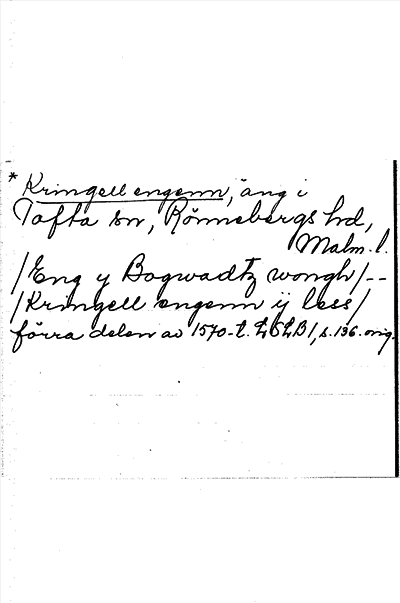 * Kringell engenn, äng i
Tofta sn, Rönnebergs hd,
Malm. l.
/Eng y Bogwadtz wongh/--
/Kringell engenn ij less/
förra delen av 1570-t. LSLB1, s. 136. orig.